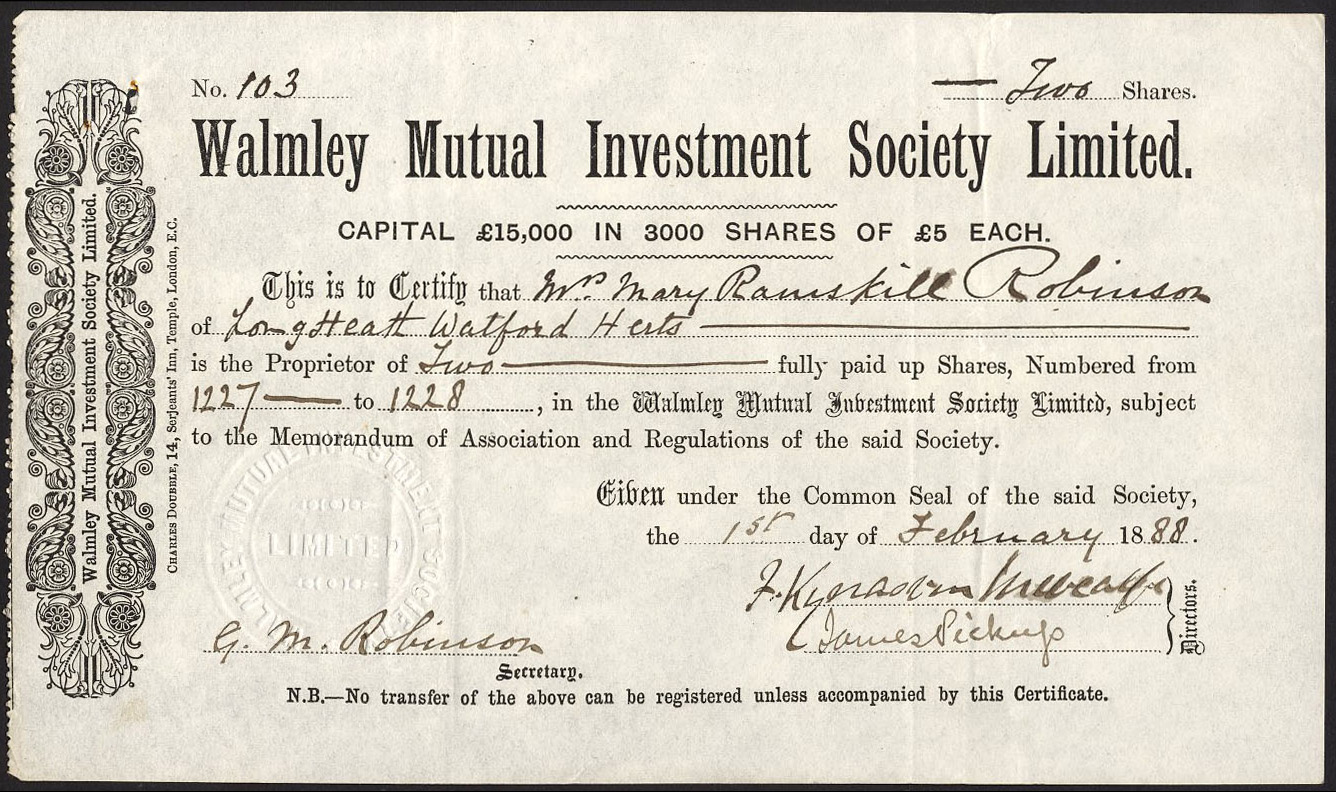 No. 103
Two Shares.
Walmley Mutual Investment Society Limited.
CAPITAL £15,000 IN 3000 SHARES OF £5 EACH.
This is to Certify that Mrs. Mary Ramskill Robinson
of Long Heath Watford Herts
is the Proprietor of Two fully paid up Shares, Numbered from
1227 to 1228, in the Walmley Mutual Investment Society Limited, subject
to the Memorandum of Association and Regulations of the said Society.
Given under the Common Seal of the said Society,
the 1st day of February 1888.
F. Metcalfe
James Pickup
Directors.
G. M. Robinson
Secretary.
N.B.—No transfer of the above can be registered unless accompanied by this Certificate.
Walmley Mutual Investment Society Limited.
CHARLES DOUBBLE, 14, Serjeants' Inn, Temple, London, E.C.
WALMLEY MUTUAL INVESTMENT SOCIETY
LIMITED